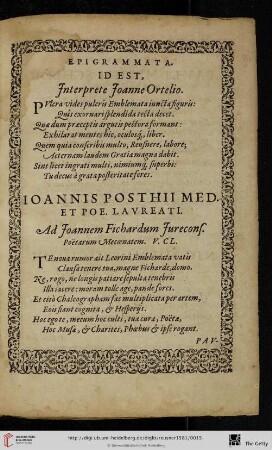 EPIGRAMMATA.
ID EST,
Interprete Joanne Ortelio.
PUlcra vides pulcris Emblemata iuncta figuris:
Quis exornari splendida tecta decet.
Qua dum præceptis argutis pectora formant:
Exhilarat mentes hic, oculosq́, liber.
Quem quia conscribis multo, Reusnere, labore,
Aeternam laudem Gratia magna dabit.
Sint licet ingrati multi, nimiumq́, superbi:
Tu decus à grata posteritate feres.
IOANNIS POSTHII MED.
ET POE. LAVREATI.
Ad Joannem Fichardum Jurecons.
Poëtarum Mecœnatem. V. CL.
TE noua rumor ait Leorini Emblemata vatis
Clausa tenere tua, magne Ficharde, domo.
Ne, rogo, sic longis patiare sepulta tenebris
Illa iacere: moram tolle age, pande fores.
Et citò Chalcographum fac multiplicata per artem,
Eois fiant cognita, & Hesperijs.
Hoc ego te, mecum hoc culti, tua cura, Poëtæ,
Hoc Musæ, & Charites, Phœbus & ipse rogant.
PAV-
http://digi.ub.uni-heidelberg.de/diglit/reusner1581/0015
© Universitätsbibliothek Heidelberg
The Getty